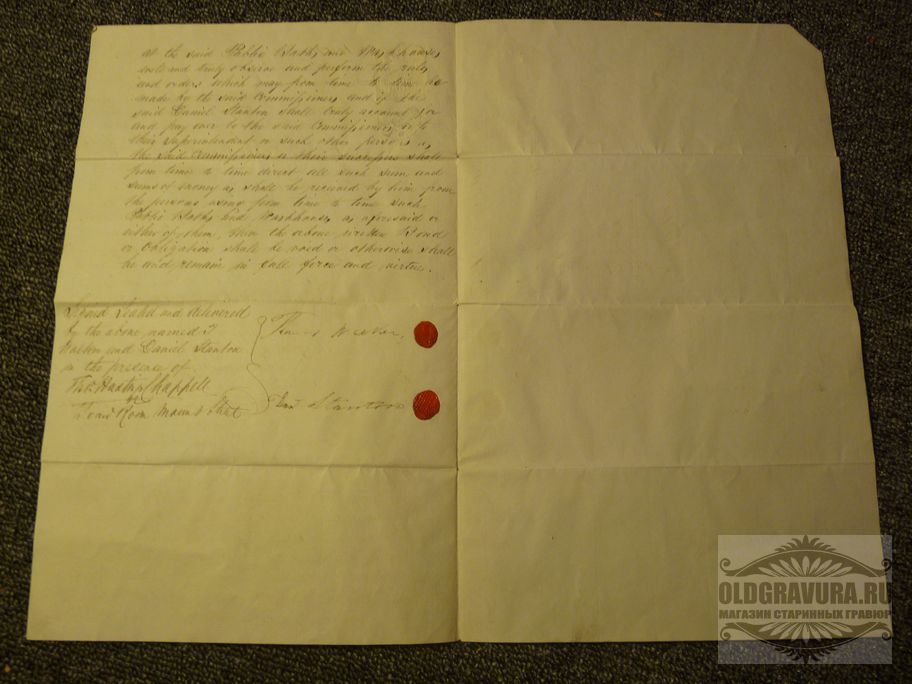 at the said Public Baths and Wash houses
well and truly observe and perform the rules
and orders which may from time to time be
made by the said Commissioners and if the
said Daniel Stanton shall truly account for
and pay over to the said Commissioners or to
their Superintendant or such other persons as
the said Commissioners or their successors shall
from time to time direct all such sum and
sums of money as shall be received by him from
the persons using from time to time such
Public Baths and Washhouses as aforesaid or
either of them, then the above written Bond
or Obligation shall be void or otherwise shall
be and remain in full force and virtue.
Signed Sealed and delivered
by the above named
and Daniel Stanton
in the presence of
Chappell
Stanton
OLDGRAVURA.RU
МАГАЗИН СТАРИННЫХ ГРАВЮР